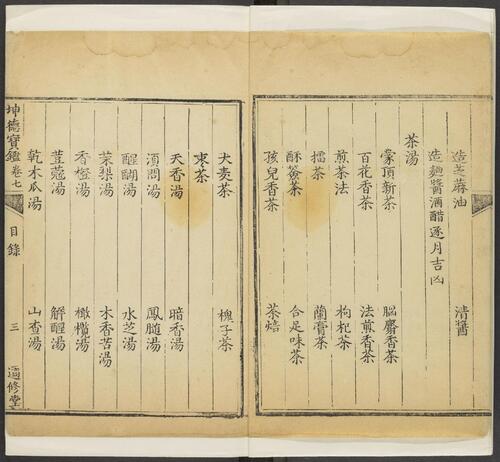 造芝麻油 清醬
造麵醬酒醋逐月吉凶
茶湯
蒙頂新茶 腦麝香茶
百花香茶 法煎香茶
煎茶法 枸杞茶
擂茶 蘭膏茶
酥簽茶 合足味茶
孩兒香茶 茶焙
大麥茶 槐子茶
枣茶
天香湯 暗香湯
須問湯 鳳髓湯
醍醐湯 水芝湯
茉梨湯 木香苦湯
香橙湯 橄欖湯
荳蔻湯 解醒湯
乾木瓜湯 山查湯
坤德寶鑑 卷七 目錄 三 適修堂